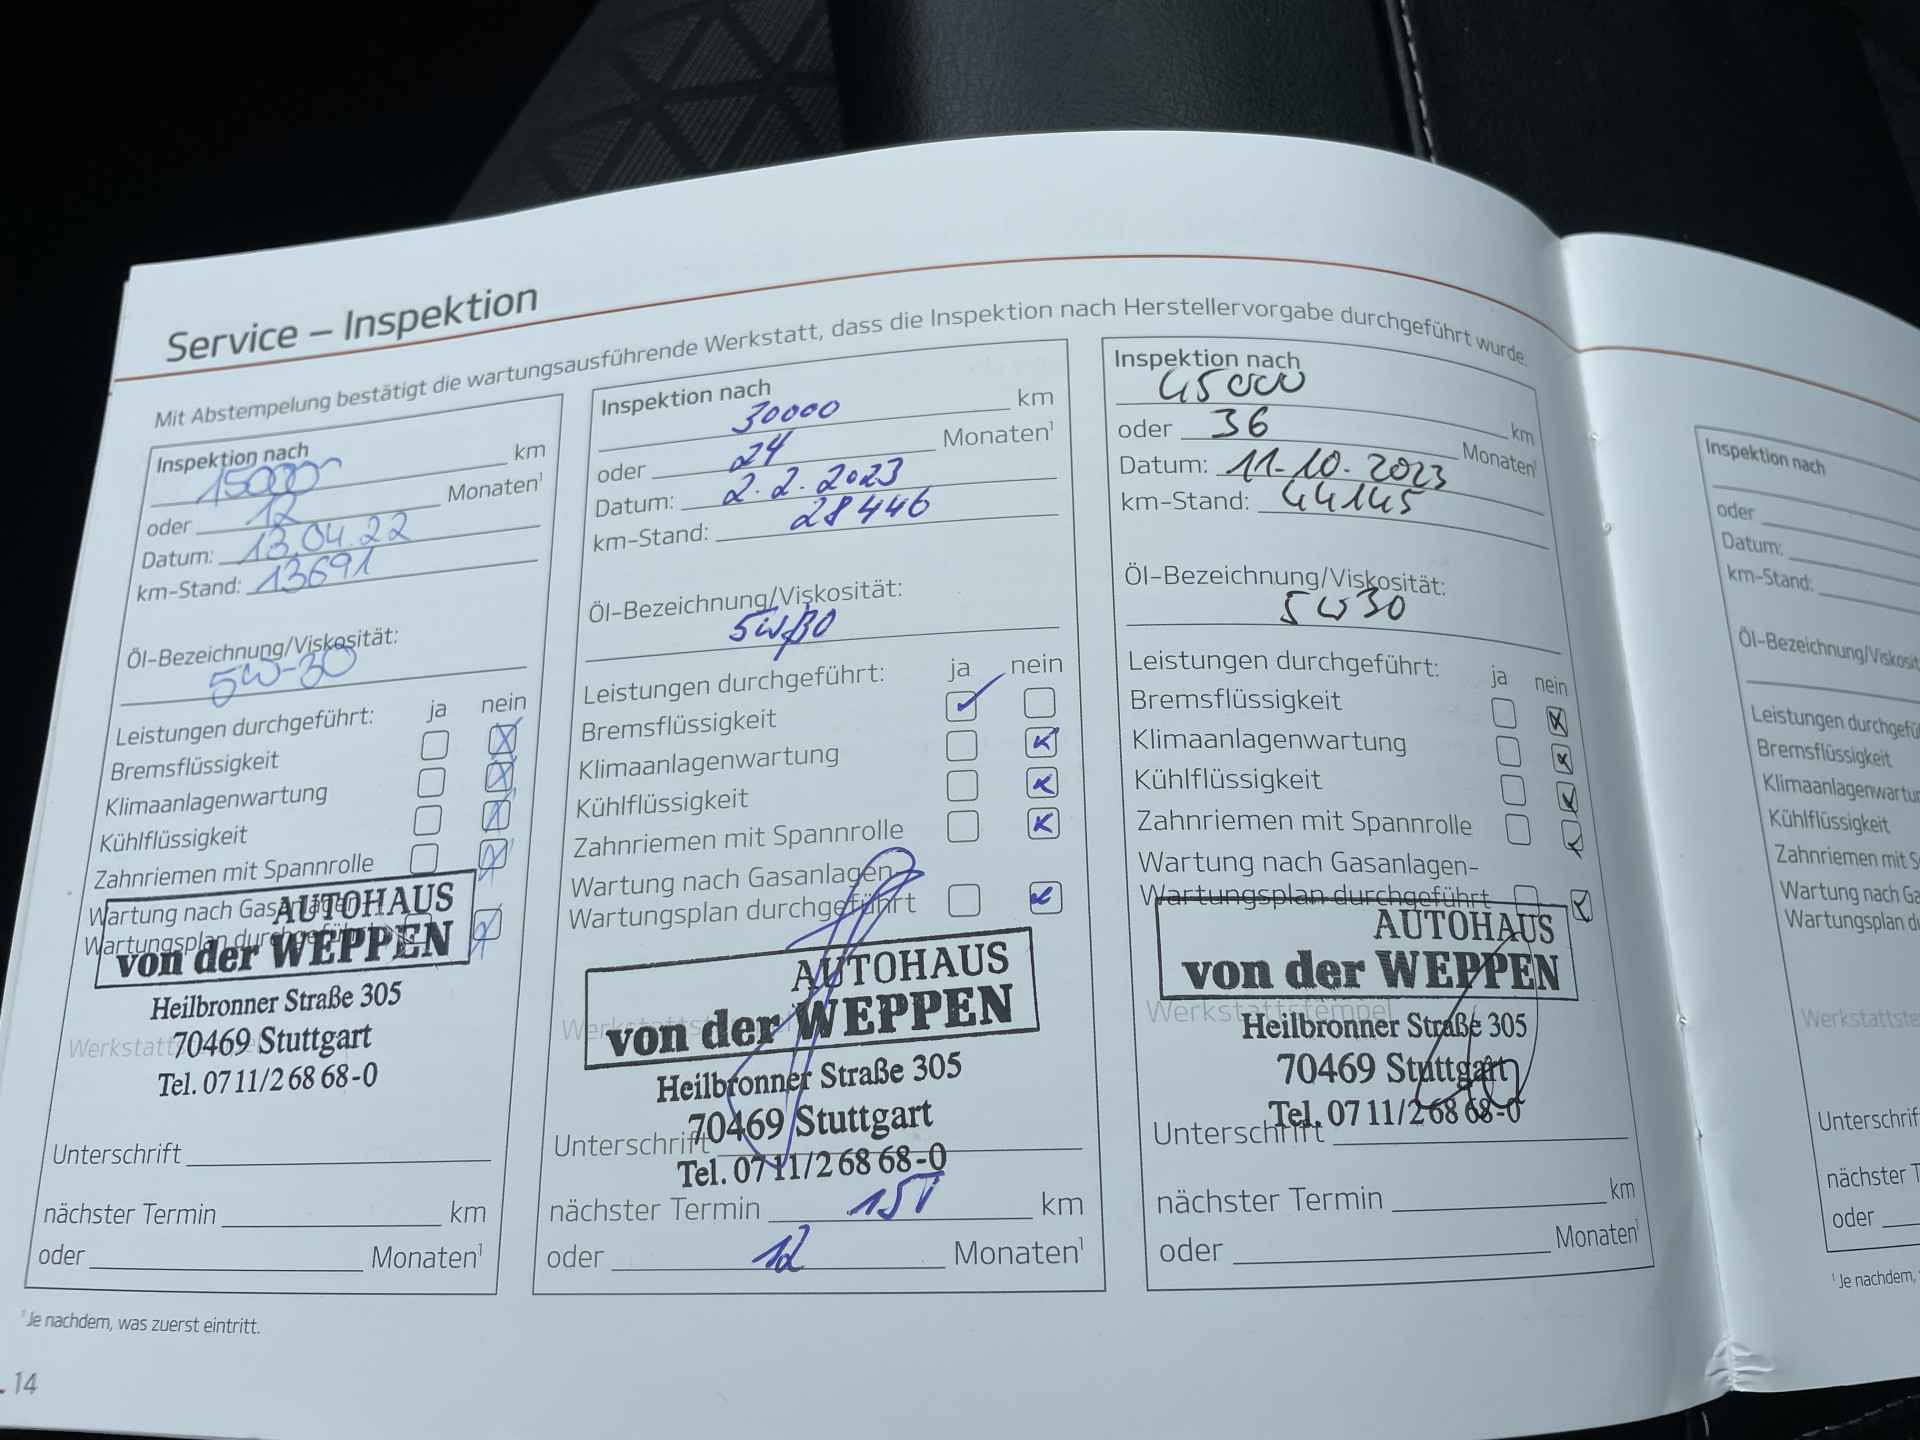 Service – Inspektion
Mit Abstempelung bestätigt die wartungsausführende Werkstatt, dass die Inspektion nach Herstellervorgabe durchgeführt wurde.
Inspektion nach
15000 km
oder 12 Monaten¹
Datum: 13.04.22
km-Stand: 13691
Öl-Bezeichnung/Viskosität:
5W-30
Leistungen durchgeführt: ja nein
Bremsflüssigkeit
Klimaanlagenwartung
Kühlflüssigkeit
Zahnriemen mit Spannrolle
Wartung nach Gasanlagen-
Wartungsplan durchgeführt
AUTOHAUS
von der WEPPEN
Heilbronner Straße 305
Werkstattstempel
70469 Stuttgart
Tel. 07 11/2 68 68-0
Unterschrift
nächster Termin km
oder Monaten¹
Inspektion nach
30000 km
oder 24 Monaten¹
Datum: 2.2.2023
km-Stand: 28446
Öl-Bezeichnung/Viskosität:
5W30
Leistungen durchgeführt: ja nein
Bremsflüssigkeit
Klimaanlagenwartung
Kühlflüssigkeit
Zahnriemen mit Spannrolle
Wartung nach Gasanlagen-
Wartungsplan durchgeführt
AUTOHAUS
Werkstattstempel
von der WEPPEN
Heilbronner Straße 305
70469 Stuttgart
Unterschrift
Tel. 07 11/2 68 68-0
nächster Termin 15T km
oder 12 Monaten¹
Inspektion nach
45000 km
oder 36 Monaten¹
Datum: 11.10.2023
km-Stand: 44145
Öl-Bezeichnung/Viskosität:
5W30
Leistungen durchgeführt: ja nein
Bremsflüssigkeit
Klimaanlagenwartung
Kühlflüssigkeit
Zahnriemen mit Spannrolle
Wartung nach Gasanlagen-
Wartungsplan durchgeführt
AUTOHAUS
von der WEPPEN
Werkstattstempel
Heilbronner Straße 305
70469 Stuttgart
Tel. 07 11/2 68 68-0
Unterschrift
nächster Termin km
oder Monaten¹
¹ Je nachdem, was zuerst eintritt.
14
Inspektion nach
oder
Datum:
km-Stand:
Öl-Bezeichnung/Viskosit
Leistungen durchgefü
Bremsflüssigkeit
Klimaanlagenwartu
Kühlflüssigkeit
Zahnriemen mit S
Wartung nach Ga
Wartungsplan du
Werkstattste
Unterschrif
nächster T
oder
¹ Je nachdem,